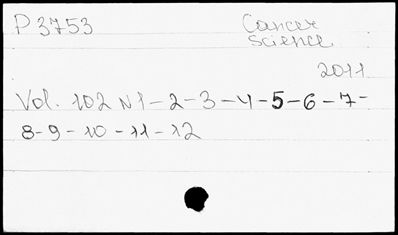 P 3753
Cancer
Science
2011
Vol. 102 N 1 - 2 - 3 - 4 - 5 - 6 - 7 -
8 - 9 - 10 - 11 - 12